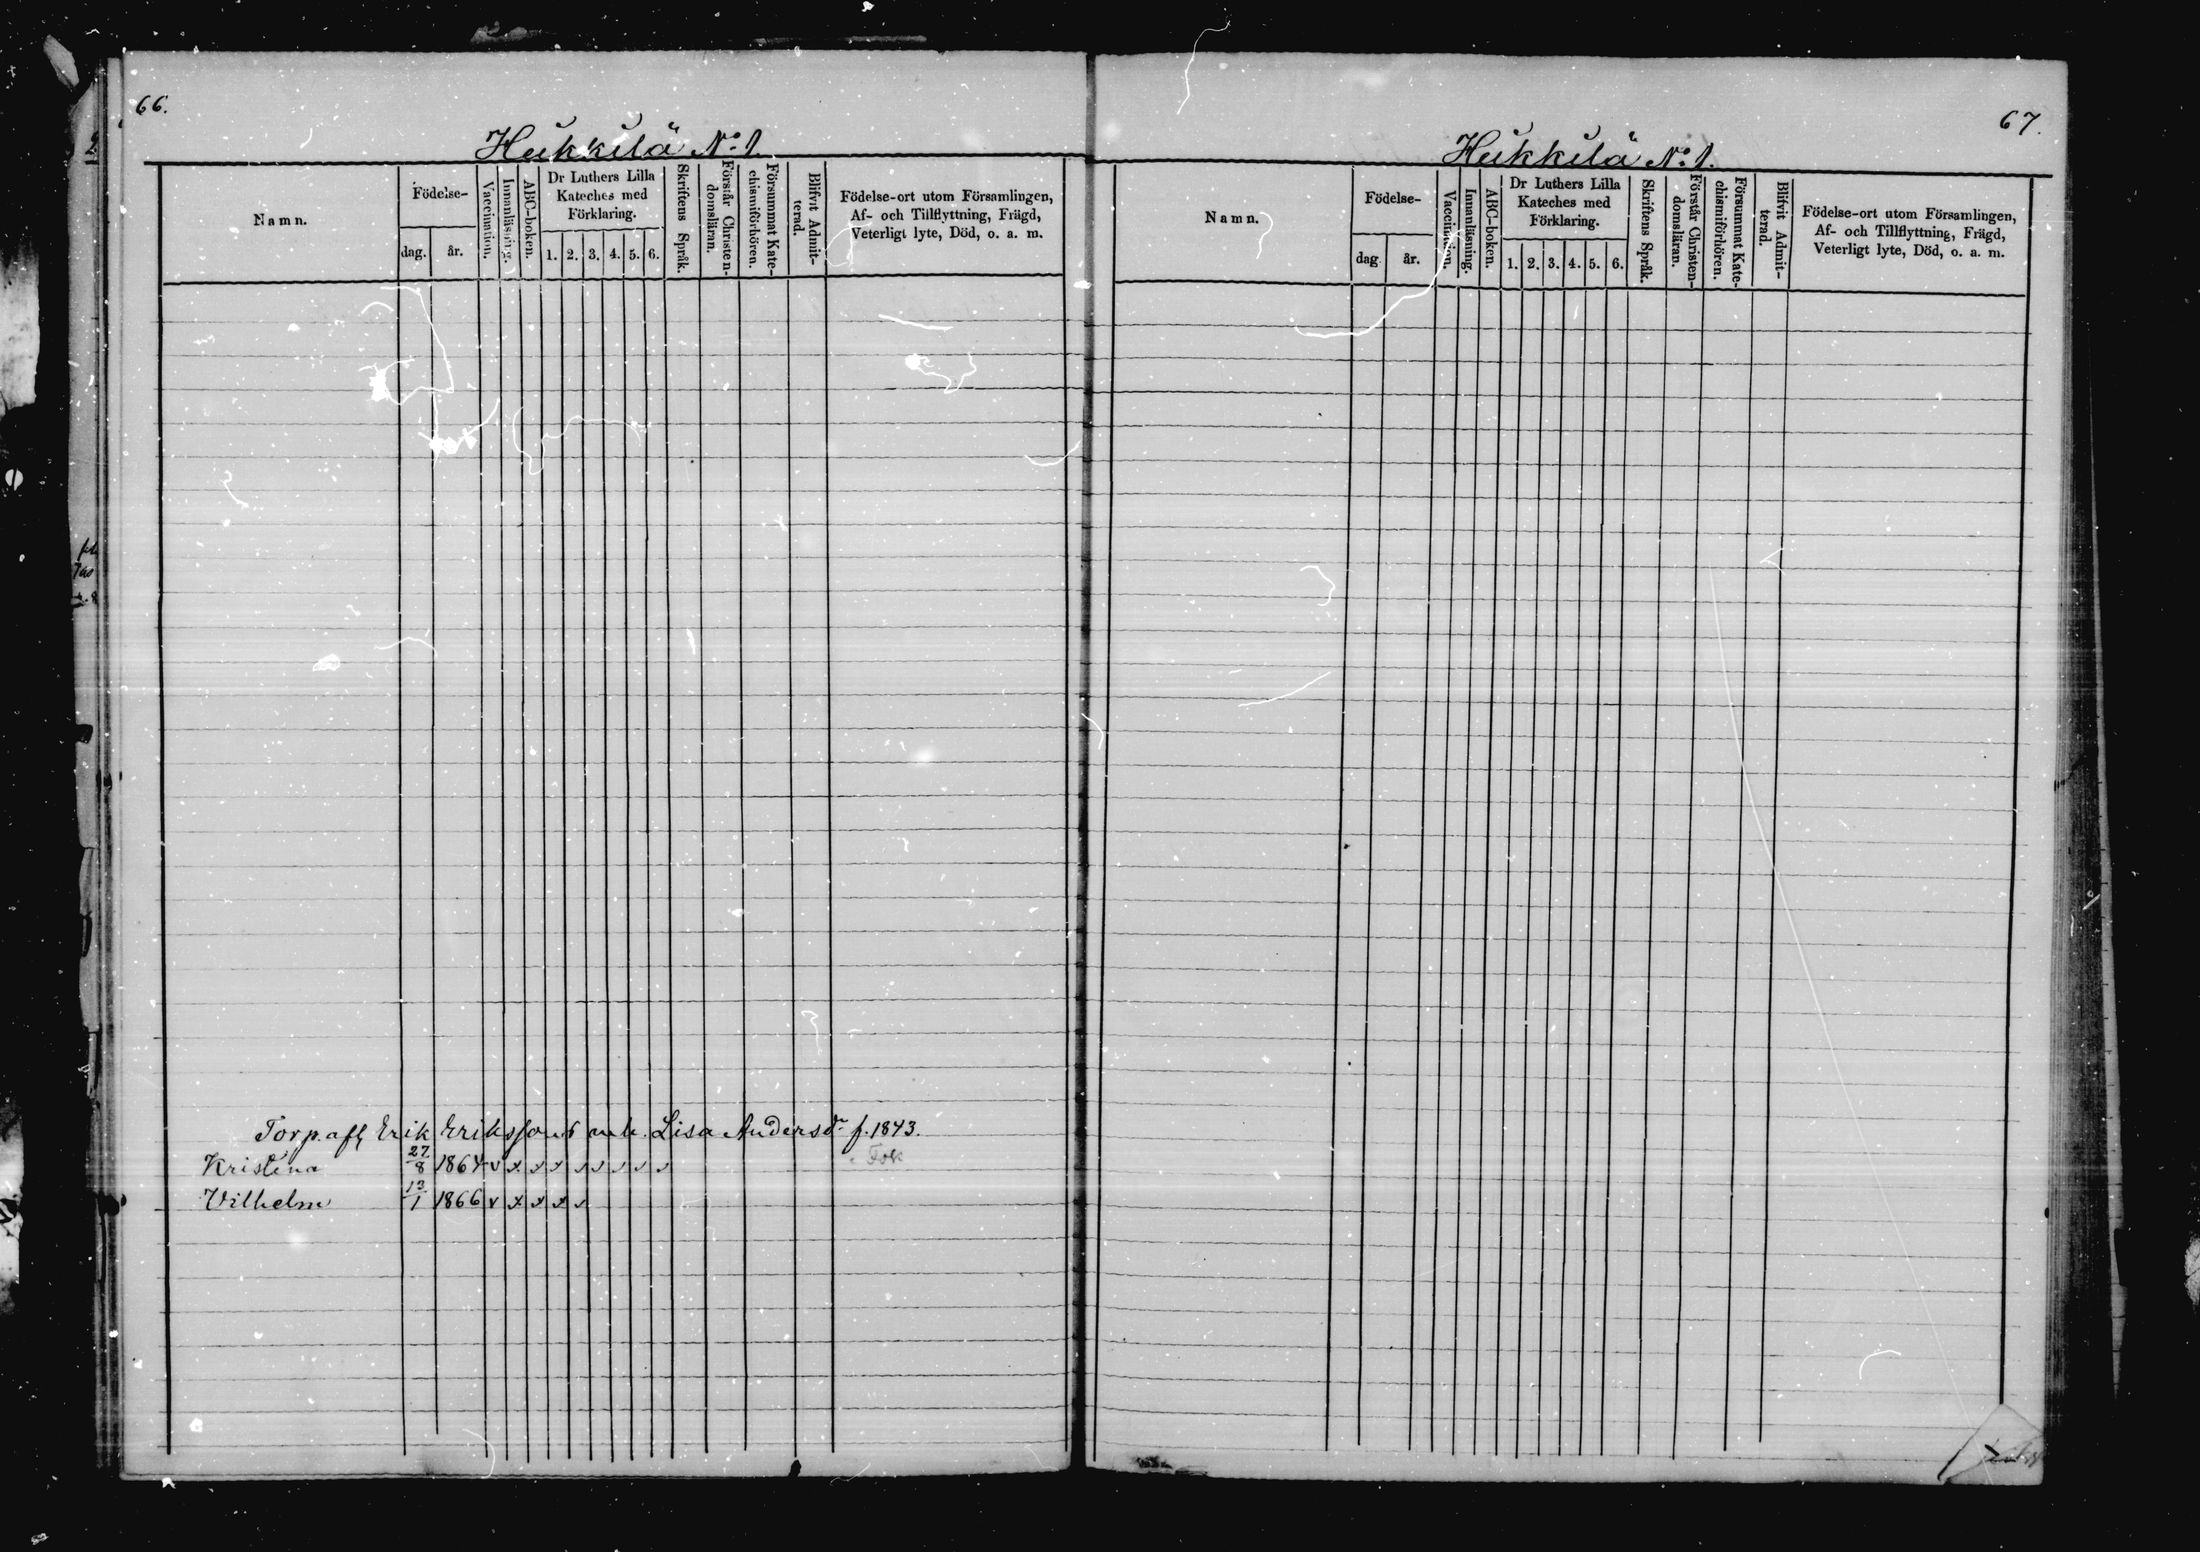 66.
Hukkilä No: 1
Namn.
Födelse-
dag.
år.
Vaccination.
Innanläsning.
ABC-boken.
Dr Luthers Lilla
Kateches med
Förklaring.
1. 2. 3. 4. 5. 6.
Skriftens Språk.
Förstår Christen-
domsläran.
Försummat Kate-
chismiförhören.
Blifvit Admit-
terad.
Födelse-ort utom Församlingen,
Af- och Tillflyttning, Frägd,
Veterligt lyte, Död, o. a. m.
Torp. afl Erik Erikssons enk. Lisa Andersdr f. 1843.
Kristina 27/8 1864 v x x x v v v v v
Wilhelm 13/1 1866 v x x x v
67.
Hukkilä No: 1.
Namn.
Födelse-
dag
år.
Vaccination.
Innanläsning.
ABC-boken.
Dr Luthers Lilla
Kateches med
Förklaring.
1. 2. 3. 4. 5. 6.
Skriftens Språk.
Förstår Christen-
domsläran.
Försummat Kate-
chismiförhören.
Blifvit Admit-
terad.
Födelse-ort utom Församlingen,
Af- och Tillflyttning, Frägd,
Veterligt lyte, Död, o. a. m.